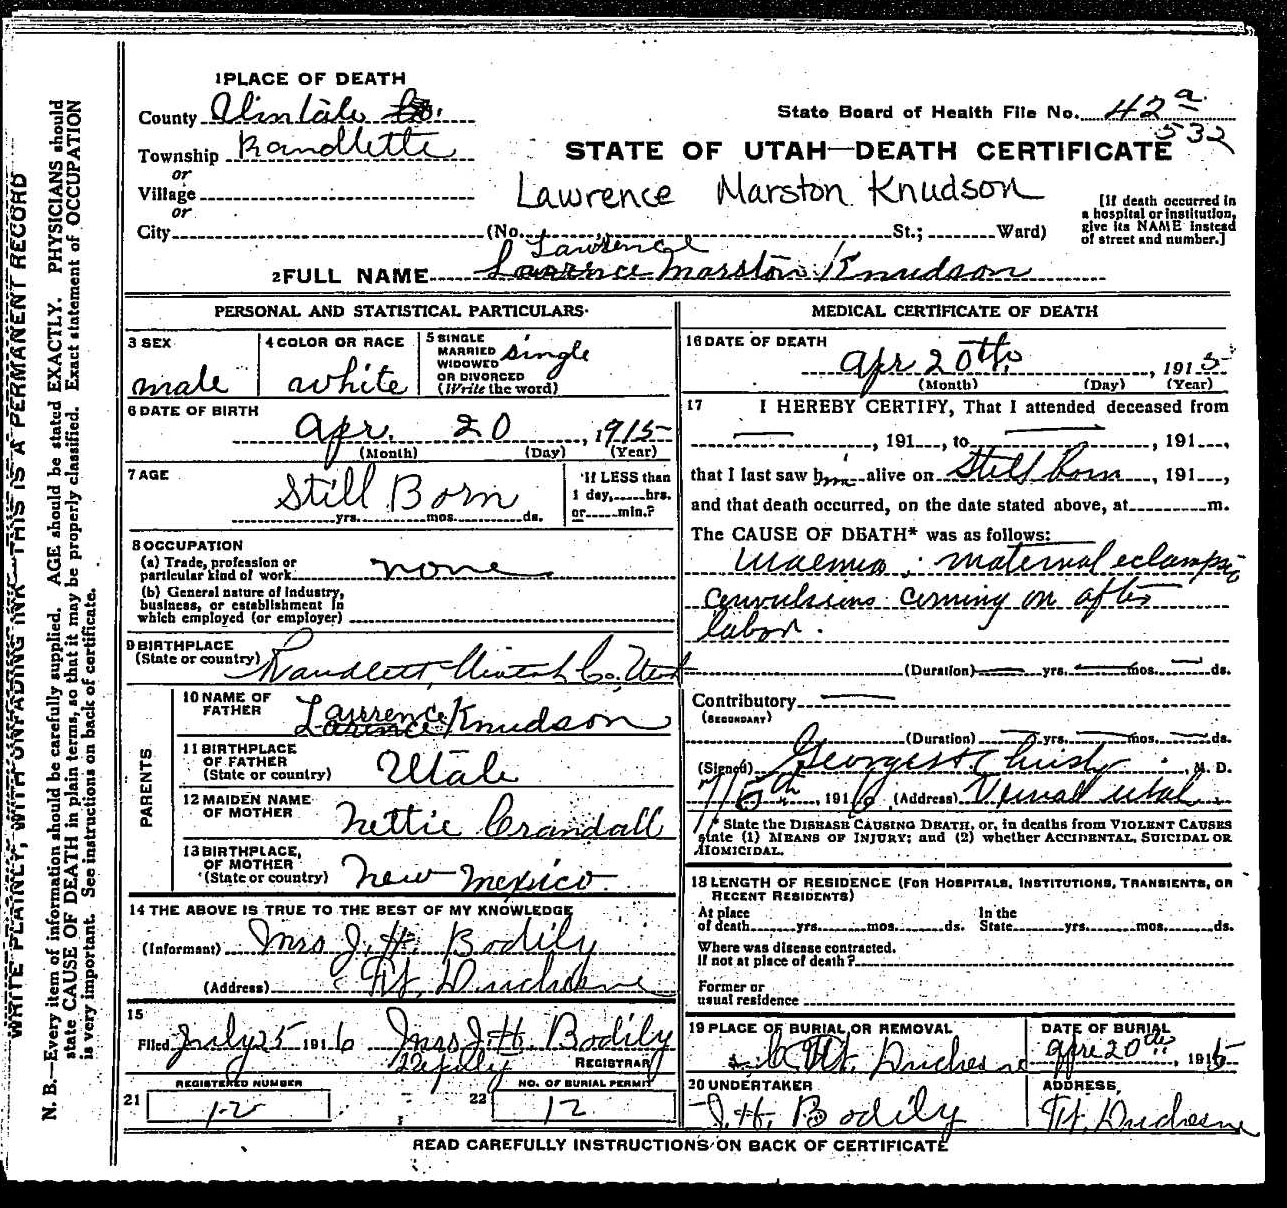 1 PLACE OF DEATH
County Uintah Co.
State Board of Health File No. 42 a
532
Township Randlette
STATE OF UTAH—DEATH CERTIFICATE
or
Village
Lawrence Marston Knudson
or
[If death occurred in a hospital or institution, give its NAME instead of street and number.]
City (No. St.; Ward)
Lawrence
2 FULL NAME Lawrence Marston Knudson
PERSONAL AND STATISTICAL PARTICULARS
3 SEX male
4 COLOR OR RACE white
5 SINGLE MARRIED WIDOWED OR DIVORCED (Write the word) single
6 DATE OF BIRTH
Apr. 20, 1915
(Month) (Day) (Year)
7 AGE
Still Born
yrs. mos. ds.
If LESS than 1 day, hrs. or min.?
8 OCCUPATION
(a) Trade, profession or particular kind of work none
(b) General nature of industry, business, or establishment in which employed (or employer)
9 BIRTHPLACE
(State or country) Randlett, Uintah Co., Utah
PARENTS
10 NAME OF FATHER Lawrence Knudson
11 BIRTHPLACE OF FATHER (State or country) Utah
12 MAIDEN NAME OF MOTHER Nettie Crandall
13 BIRTHPLACE, OF MOTHER (State or country) New Mexico
14 THE ABOVE IS TRUE TO THE BEST OF MY KNOWLEDGE
(Informant) Mrs J. H. Bodily
(Address) Ft. Duchesne
15
Filed July 25 1916 Mrs J. H. Bodily
Deputy REGISTRAR
REGISTERED NUMBER
21 12
NO. OF BURIAL PERMIT
22 12
MEDICAL CERTIFICATE OF DEATH
16 DATE OF DEATH
Apr 20th, 1915
(Month) (Day) (Year)
17 I HEREBY CERTIFY, That I attended deceased from
, 191 , to , 191 ,
that I last saw him alive on Still Born, 191 ,
and that death occurred, on the date stated above, at m.
The CAUSE OF DEATH* was as follows:
maternal
convulsions coming on after
labor.
(Duration) yrs. mos. ds.
Contributory
(SECONDARY)
(Duration) yrs. mos. ds.
(Signed) , M. D.
, 1916 (Address) Vernal Utah
* State the DISEASE CAUSING DEATH, or, in deaths from VIOLENT CAUSES state (1) MEANS OF INJURY; and (2) whether ACCIDENTAL, SUICIDAL OR HOMICIDAL.
18 LENGTH OF RESIDENCE (FOR HOSPITALS, INSTITUTIONS, TRANSIENTS, OR RECENT RESIDENTS)
At place of death yrs. mos. ds. In the State yrs. mos. ds.
Where was disease contracted. If not at place of death?
Former or usual residence
19 PLACE OF BURIAL OR REMOVAL
Ft. Duchesne
DATE OF BURIAL
Apr 20th, 1915
20 UNDERTAKER
J. H. Bodily
ADDRESS,
Ft. Duchesne
READ CAREFULLY INSTRUCTIONS ON BACK OF CERTIFICATE
WRITE PLAINLY, WITH UNFADING INK—THIS IS A PERMANENT RECORD
N. B.—Every item of information should be carefully supplied. AGE should be stated EXACTLY. PHYSICIANS should
state CAUSE OF DEATH in plain terms, so that it may be properly classified. Exact statement of OCCUPATION
is very important. See instructions on back of certificate.